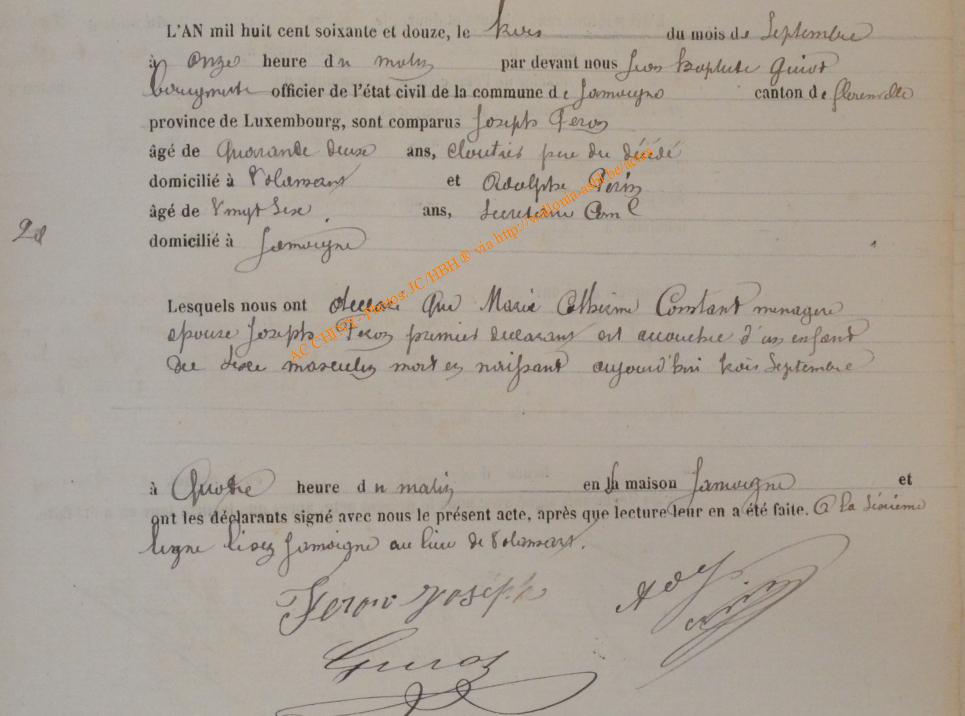 L'AN mil huit cent soixante et douze, le trois du mois de Septembre
à onze heure du matin par devant nous Jean Baptiste Guiot
bourgmestre officier de l'état civil de la commune de Jamoigne canton de florenville
province de Luxembourg, sont comparus Joseph Feron
âgé de Quarante deux ans, cloutier pere du décédé
domicilié à Valansart et Adolphe Perin
âgé de Vingt six ans, Secretaire Cml
domicilié à Jamoigne
Lesquels nous ont déclaré Que Marie Catherine Constant menagere
epouse Joseph Feron premier declarant est accouchée d'un enfant
du sexe masculin mort en naissant aujourd'hui trois Septembre
à Quatre heure du matin en la maison Jamoigne et
ont les déclarants signé avec nous le présent acte, après que lecture leur en a été faite. A la sixieme
ligne lisez Jamoigne au lieu de Valansart.
Feron Joseph
Guiot
AC CHINY - Photos: JC/HBH® via http://wallonia-asbl.be/actes